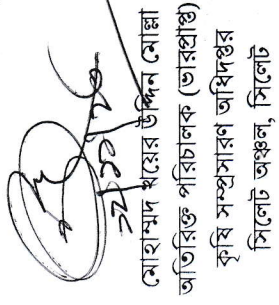 ২২/১১/২০
মোহাম্মদ খয়ের উদ্দিন মোল্লা
অতিরিক্ত পরিচালক (ভারপ্রাপ্ত)
কৃষি সম্প্রসারণ অধিদপ্তর
সিলেট অঞ্চল, সিলেট